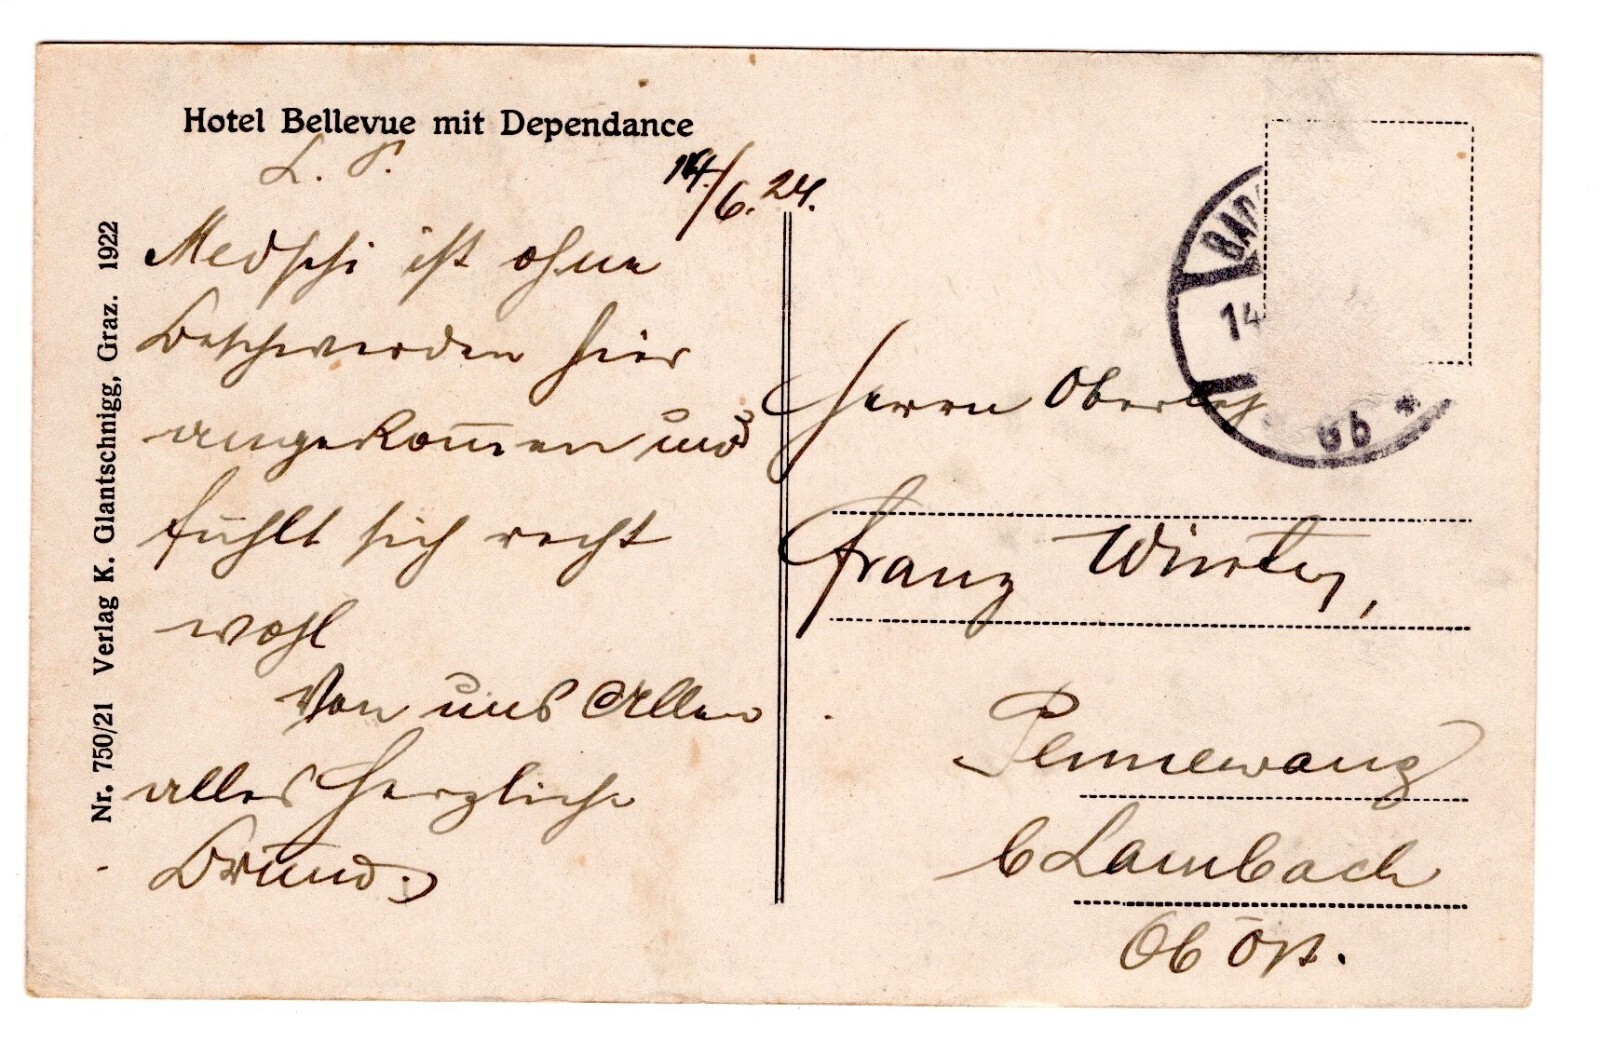 Hotel Bellevue mit Dependance
L. P.
14./6. 24.
ist ohne
Beschwerden hier
angekom̄en und
fühlt sich recht
wohl
Von uns Allen
alles Herzliche
Nr. 750/21 Verlag K. Glantschnigg, Graz. 1922
BAD
14
6b *
Herrn Oberlehr
Franz
Pennewang
b Lambach
Ob Öst.